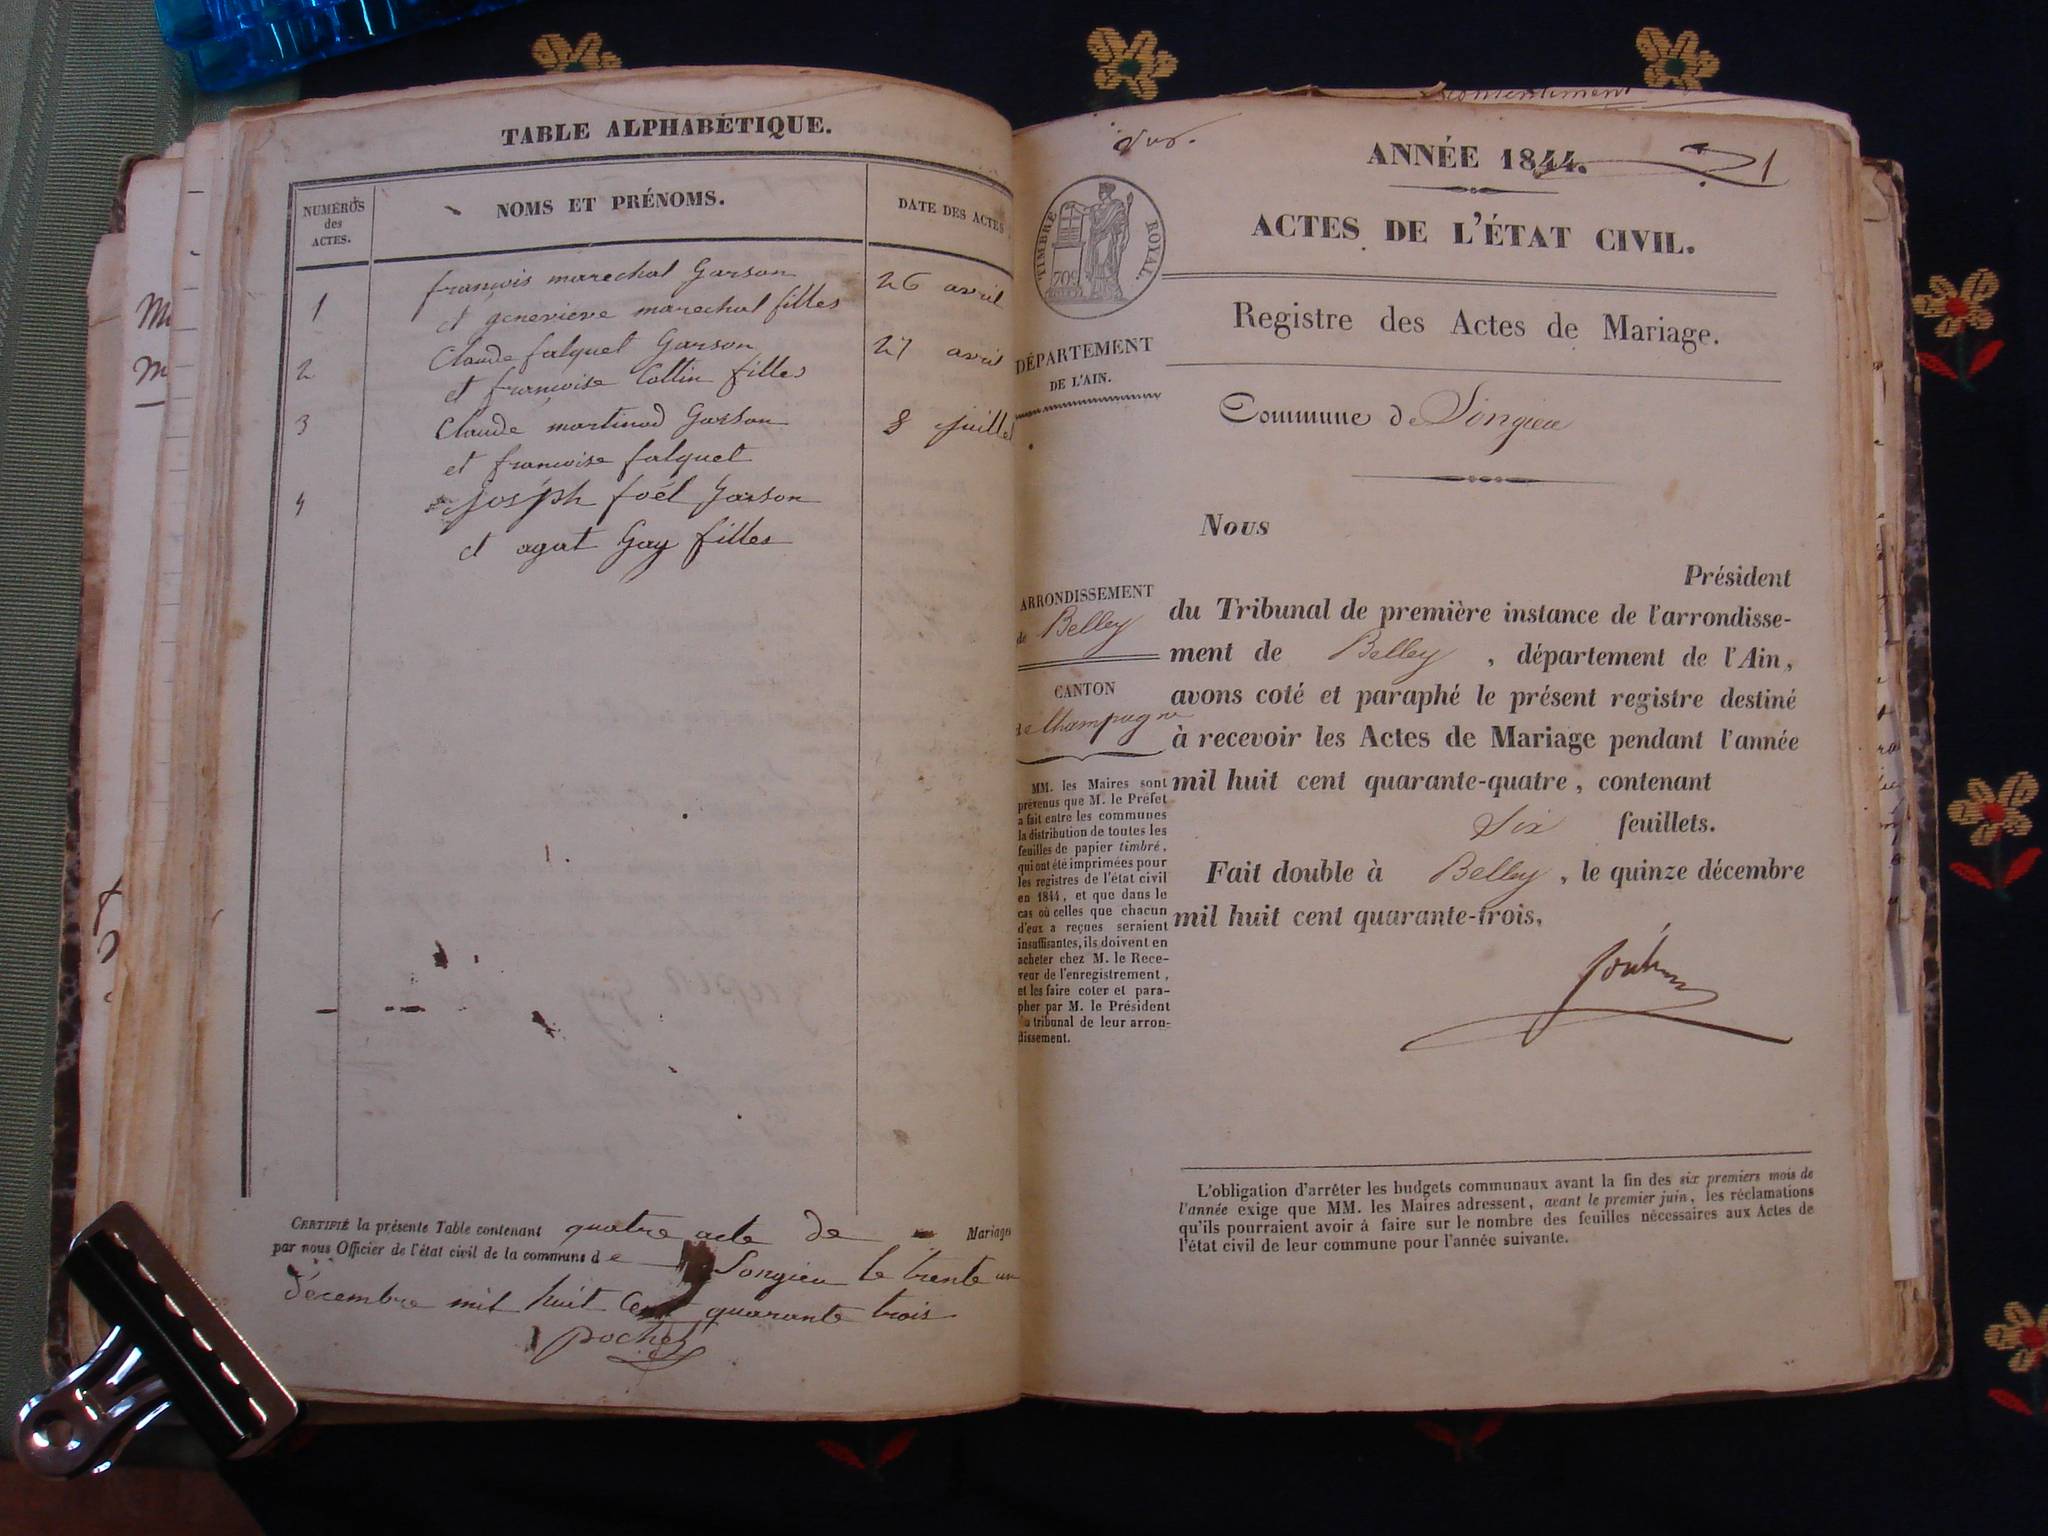 TABLE ALPHABÉTIQUE.
NUMÉROS
des
ACTES.
NOMS ET PRÉNOMS.
DATE DES ACTES
1
francois marechal Garson
et genevieve marechal filles
26 avril
2
Claude falquet Garson
et francoise Collin filles
27 avril
3
Claude martinod Garson
et francoise falquet
8 juillet
4
joseph foèl Garson
et agat Gay filles
CERTIFIÉ la présente Table contenant quatre acte de Mariages
par nous Officier de l'état civil de la commune de Songieu le trente un
décembre mil huit Cent quarante trois
pochet
ANNÉE 1844.
1
ACTES DE L'ÉTAT CIVIL.
TIMBRE ROYAL.
70c
Registre des Actes de Mariage.
DÉPARTEMENT
DE L'AIN.
Commune de Songieu
Nous
Président
ARRONDISSEMENT
de Belley
CANTON
de Champagne
du Tribunal de première instance de l'arrondisse-
ment de Belley, département de l'Ain,
avons coté et paraphé le présent registre destiné
à recevoir les Actes de Mariage pendant l'année
mil huit cent quarante-quatre, contenant
Six feuillets.
Fait double à Belley, le quinze décembre
mil huit cent quarante-trois,
MM. les Maires sont
prévenus que M. le Préfet
a fait entre les communes
la distribution de toutes les
feuilles de papier timbré,
qui ont été imprimées pour
les registres de l'état civil
en 1844, et que dans le
cas où celles que chacun
d'eux a reçues seraient
insuffisantes, ils doivent en
acheter chez M. le Rece-
veur de l'enregistrement,
et les faire coter et para-
pher par M. le Président
tribunal de leur arron-
dissement.
L'obligation d'arrêter les budgets communaux avant la fin des six premiers mois de
l'année exige que MM. les Maires adressent, avant le premier juin, les réclamations
qu'ils pourraient avoir à faire sur le nombre des feuilles nécessaires aux Actes de
l'état civil de leur commune pour l'année suivante.